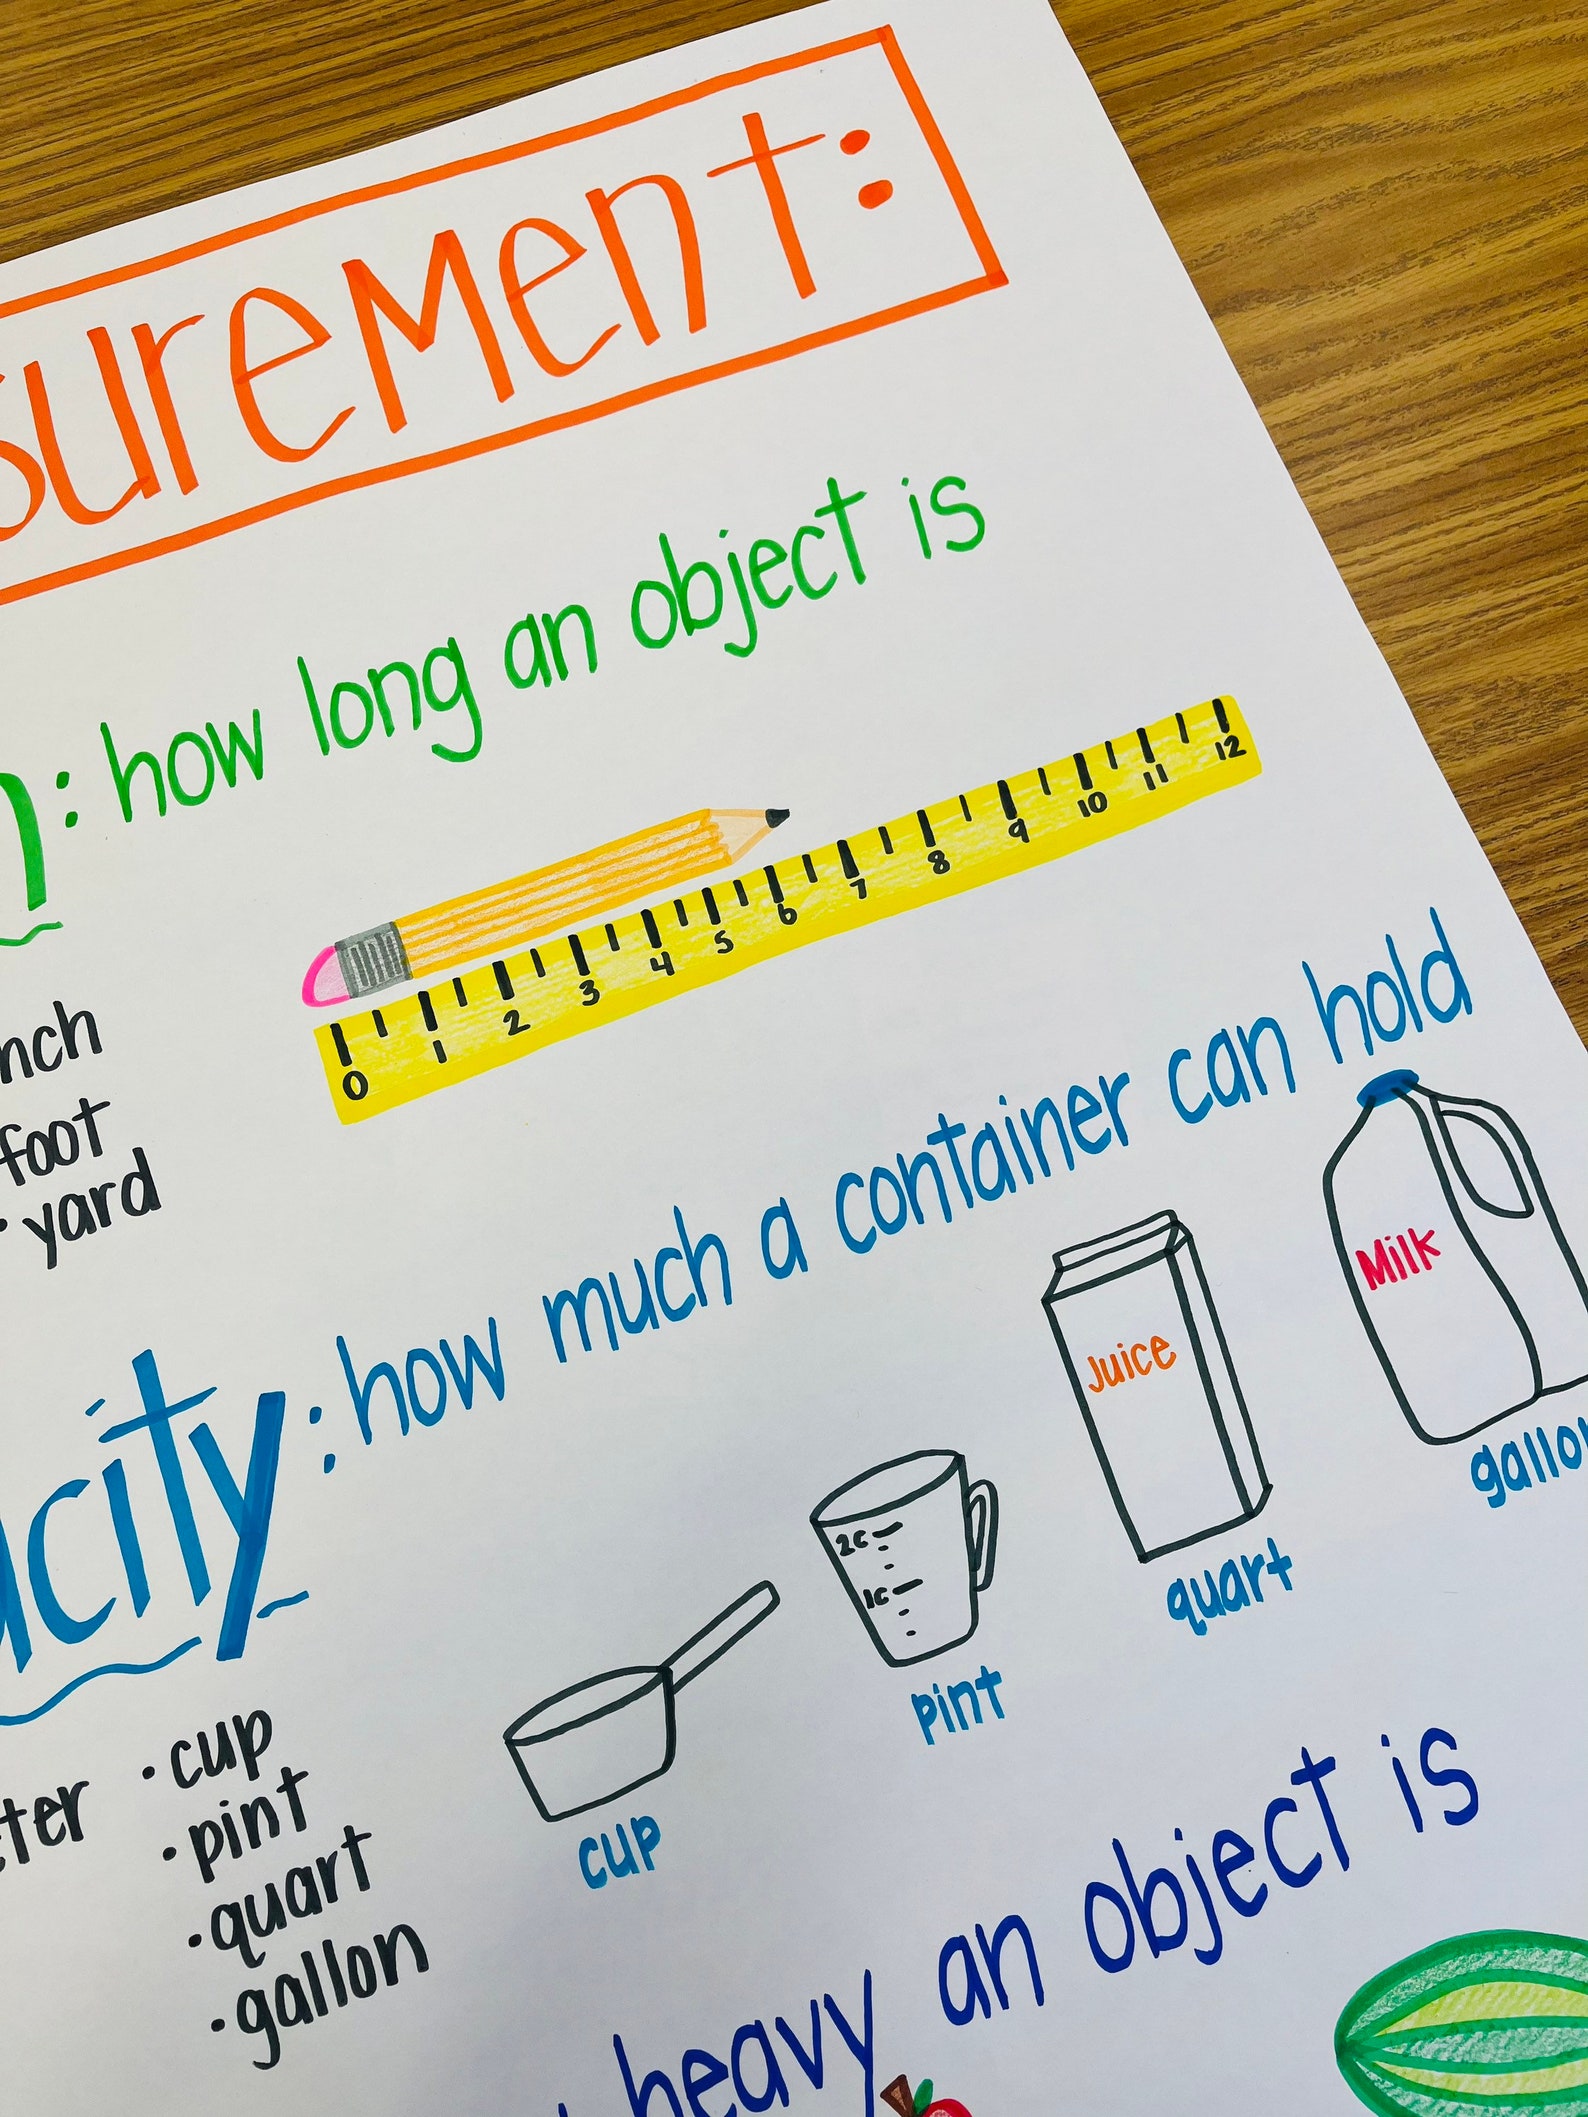 surement:
: how long an object is
0 1 2 3 4 5 6 7 8 9 10 11 12
nch
foot
· yard
acity: how much a container can hold
Milk
Juice
gallo
2c
1c
quart
pint
cup
ter
· cup
· pint
· quart
· gallon
heavy an object is